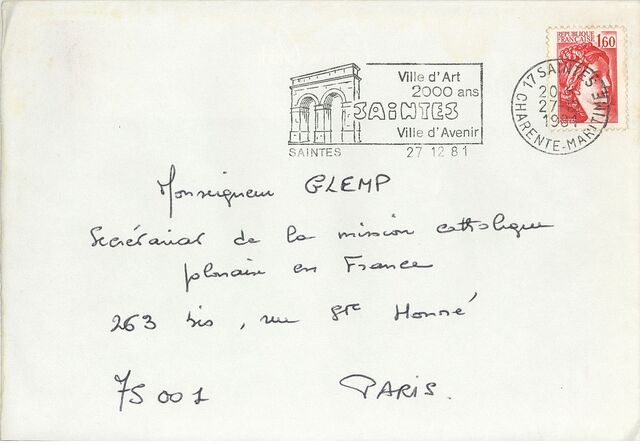 REPUBLIQUE
FRANCAISE
1,60
Ville d'Art
2000 ans
SAINTES
Ville d'Avenir
SAINTES
27 12 81
17 SAINTES
27
1981
CHARENTE-MARITIME
Monseigneur GLEMP
Secrétariat de la mission catholique
polonaise en France
263 bis, rue Ste Honoré
75001 PARIS.